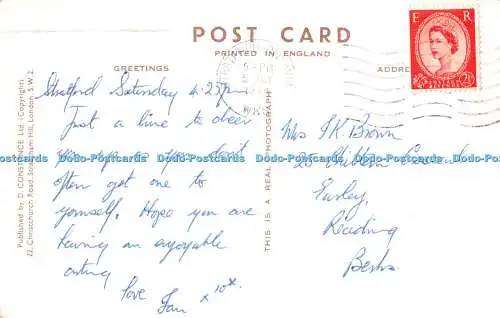 POST CARD
PRINTED IN ENGLAND
GREETINGS
ADDRES
E R
POSTAGE REVENUE
2½ D
Stratford Saturday 4.25pm
Just a line to cheer
you up as you don't
often get one to
yourself. Hope you are
having an enjoyable
outing
love
x 10st.
Mrs J K Brown
25
Earley,
Reading
Berks
THIS IS A REAL PHOTOGRAPH
Published by D. CONSTANCE Ltd. (Copyright)
22, Christchurch Road, Streatham Hill, London, S.W.2.
Dodo-Postcards Dodo-Postcards Dodo-Postcards Dodo-Postcards Dodo-Postcards